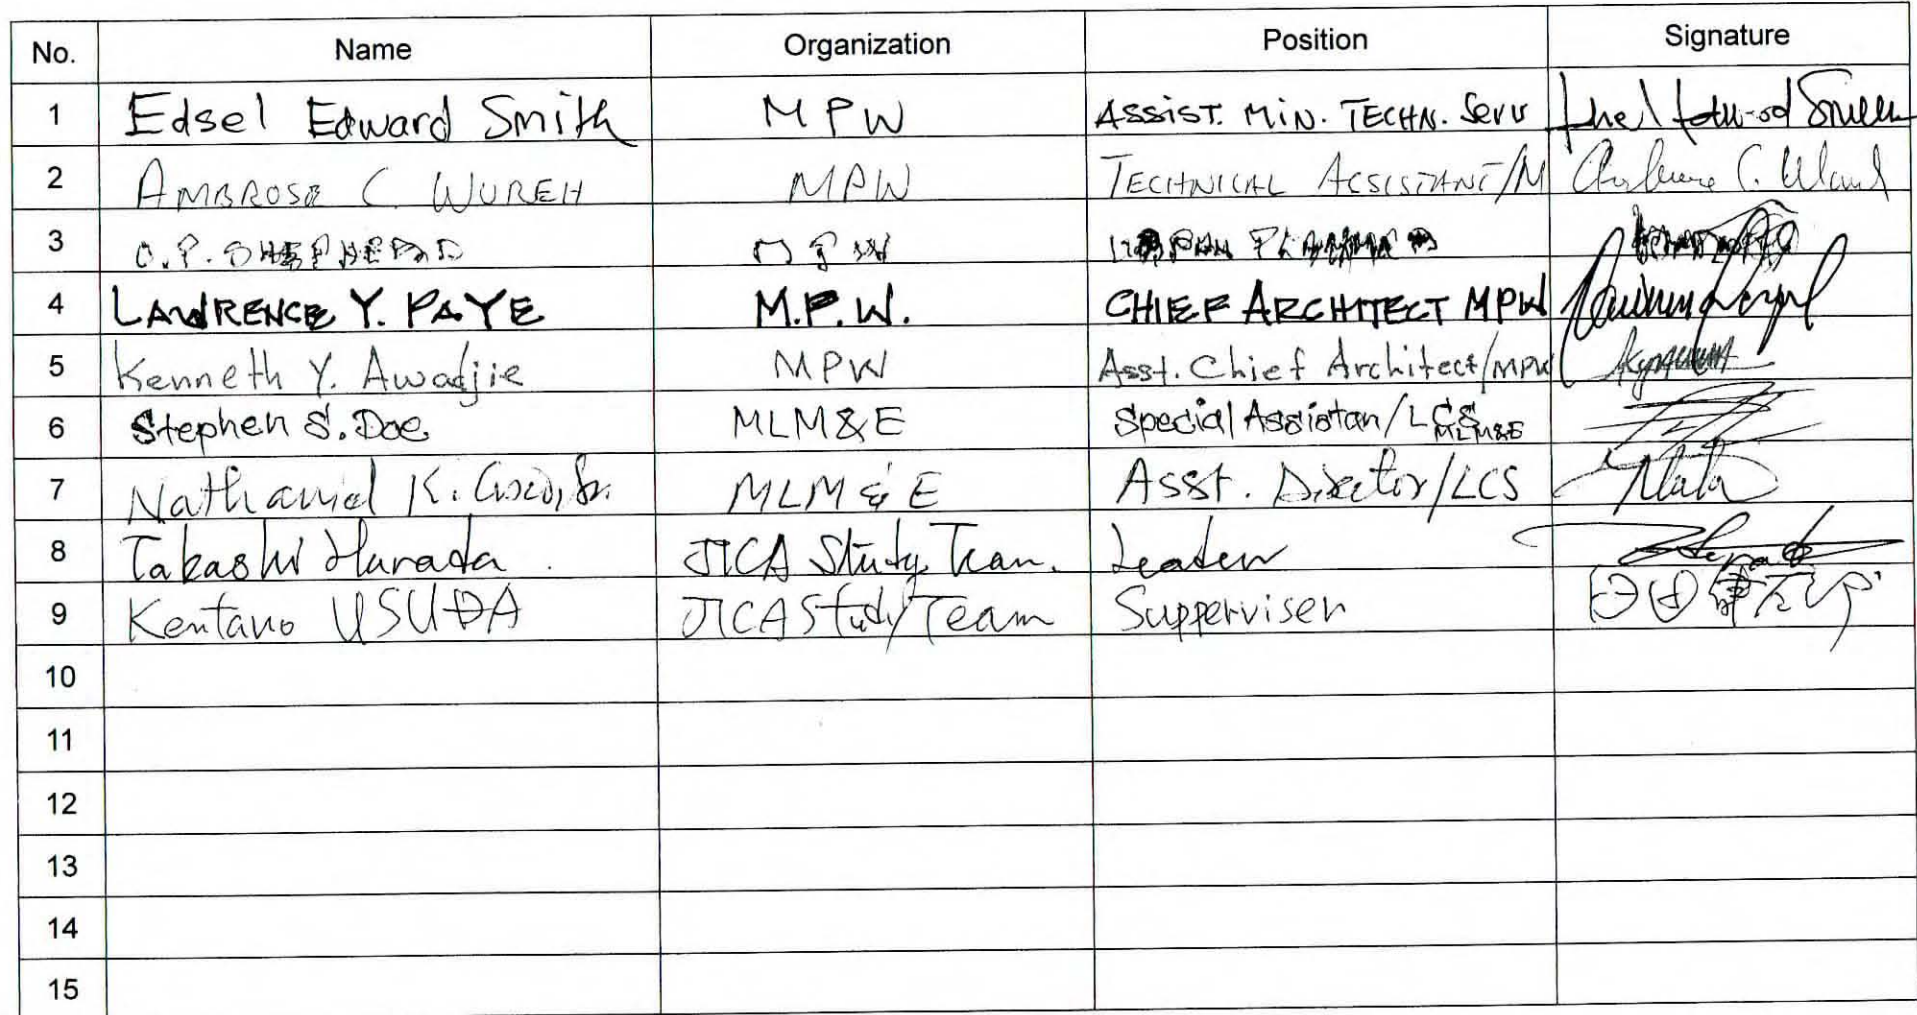 No. Name Organization Position Signature
1 Edsel Edward Smith MPW ASSIST. MIN. TECHN. Serv
2 AMBROSE C. WUREH MPW TECHNICAL ASSISTANT/M
3 O.P. SHEPHERD MPW
4 LAWRENCE Y. PAYE M.P.W. CHIEF ARCHITECT MPW
5 Kenneth Y. Awadjie MPW Asst. Chief Architect/MPW
6 Stephen S. Doe MLM&E Special Assistan/LCS MLM&E
7 Nathaniel K. MLM & E Asst. Director/LCS
8 Takashi Harada JICA Study Team. Leader
9 Kentaro USUDA JICA Study Team Supperviser
10
11
12
13
14
15